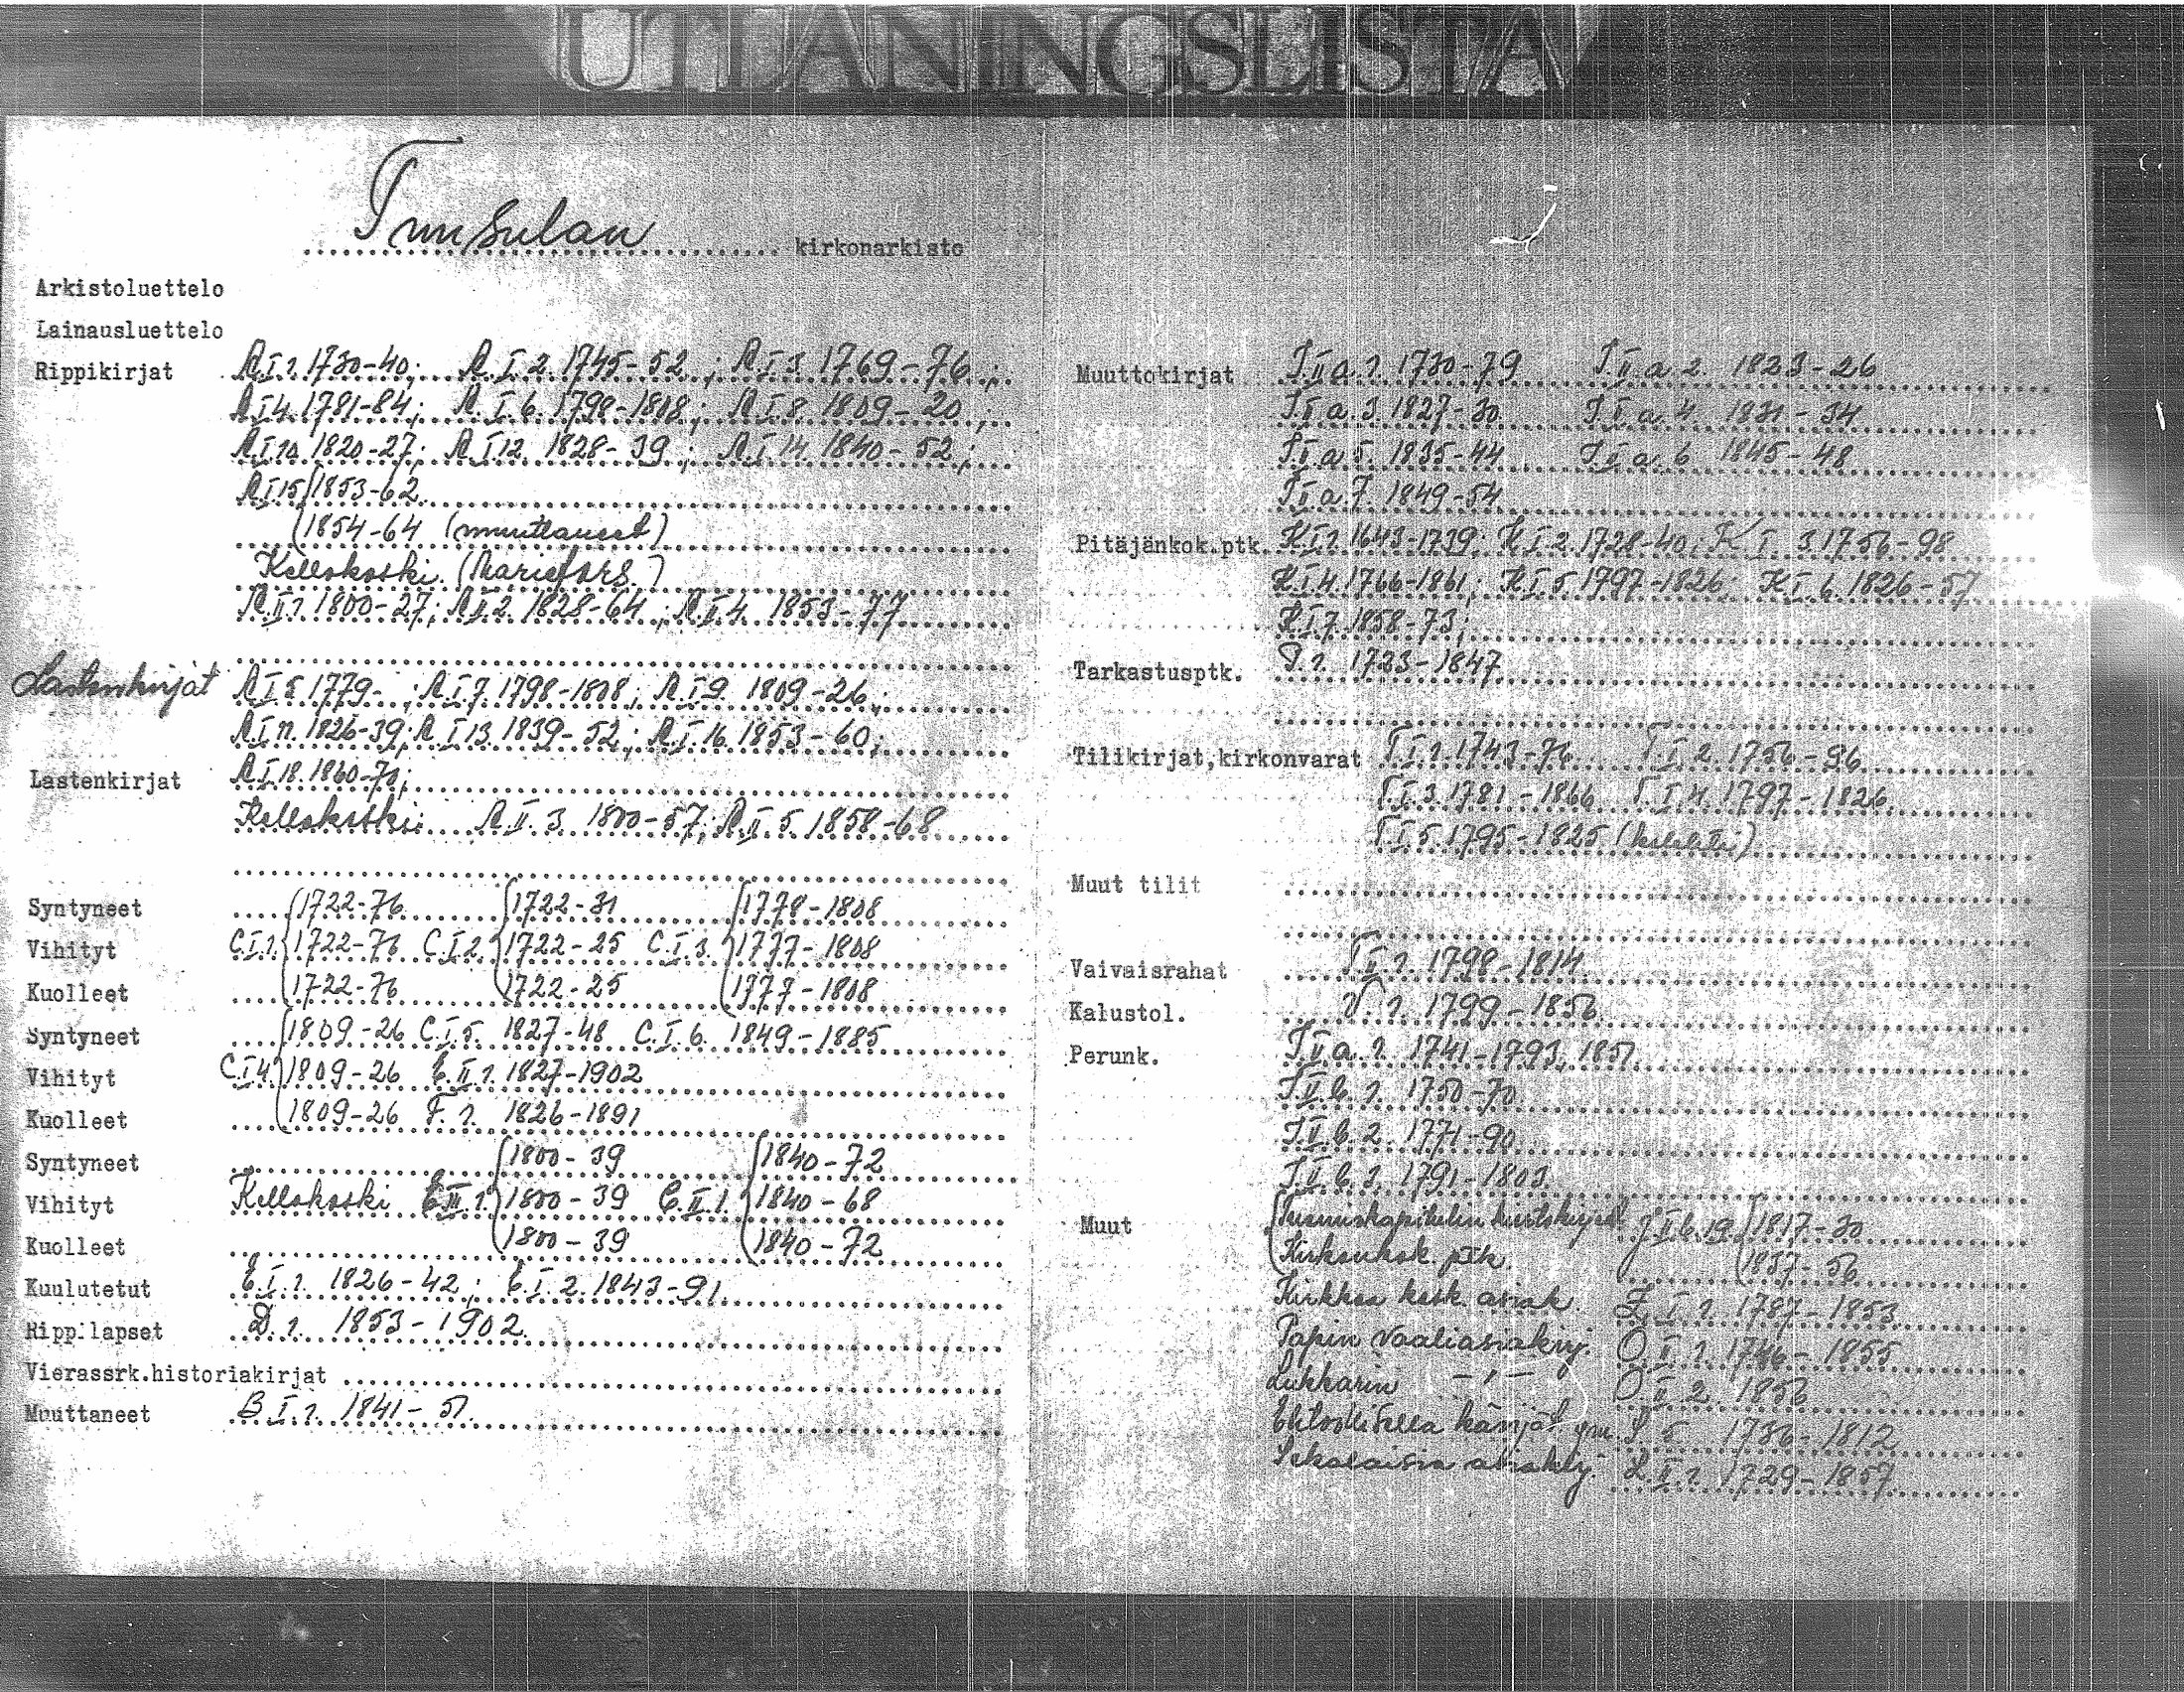 UTLÅNINGSLISTA
Tuusulan kirkonarkisto
Arkistoluettelo
Lainausluettelo
Rippikirjat A.I.1. 1730-40; A.I.2. 1745-52; A.I.3. 1769-76;
A.I.4. 1781-84; A.I.6. 1798-1808; A.I.8. 1809-20;
A.I.10. 1820-27; A.I.12. 1828-39; A.I.14. 1840-52;
A.I.15. 1853-62
1854-64 (muuttaneet)
Kellokoski (Mariefors.)
A.II.1. 1800-27; A.II.2. 1828-64; A.II.4. 1853-77
Lastenkirjat A.I.5. 1779- ; A.I.7. 1798-1808; A.I.9. 1809-26;
A.I.11. 1826-39; A.I.13. 1839-52; A.I.16. 1853-60;
Lastenkirjat A.I.18. 1860-70;
Kellokoski: A.II.3. 1800-57; A.II.5. 1858-68
Syntyneet 1722-76 1722-31 1778-1808
Vihityt C.I.1. 1722-76 C.I.2. 1722-25 C.I.3. 1777-1808
Kuolleet 1722-76 1722-25 1777-1808
Syntyneet 1809-26 C.I.5. 1827-48 C.I.6. 1849-1885
Vihityt C.I.4. 1809-26 E.II.1. 1827-1902
Kuolleet 1809-26 F.1. 1826-1891
Syntyneet 1800-39 1840-72
Vihityt Kellokoski E.III.1. 1800-39 C.II.1. 1840-68
Kuolleet 1800-39 1840-72
Kuulutetut E.I.1. 1826-42; E.I.2. 1843-91
Ripp.lapset D.1. 1853-1902
Vierassrk.historiakirjat
Muuttaneet B.I.1. 1841-51
Muuttokirjat J.II.a.1. 1730-79 J.II.a.2. 1823-26
J.II.a.3. 1827-30 J.II.a.4. 1831-34
J.II.a.5. 1835-44 J.II.a.6. 1845-48
J.II.a.7. 1849-54
Pitäjänkok.ptk. K.I.1. 1643-1739; K.I.2. 1728-40; K.I.3. 1756-98
K.I.4. 1766-1861; K.I.5. 1797-1826; K.I.6. 1826-57
K.I.7. 1858-73;
Tarkastusptk. P.1. 1723-1847
Tilikirjat,kirkonvarat T.I.1. 1743-76 T.I.2. 1756-96
T.I.3. 1781-1866 T.I.4. 1797-1826
T.I.5. 1795-1825
Muut tilit
Vaivaisrahat T.II.1. 1798-1814
Kalustol. V.1. 1799-1856
Perunk. J.II.a.1. 1741-1793, 1851
J.II.b.1. 1750-70
J.II.b.2. 1771-90
J.II.b.3. 1791-1803
Muut Tuomiokapitulin J.II.b.19. 1817-30
Kirkonkok. ptk. 1837-56
Kirkkoa kosk. asiak. Z.I.1. 1787-1853
Papin vaaliasiakirj. O.II.1. 1746-1855
Lukkarin -"- O.II.2. 1856
käsijät ym. S.5 1786-1812
Sekalaisia asiakirj. Z.II.1. 1729-1857